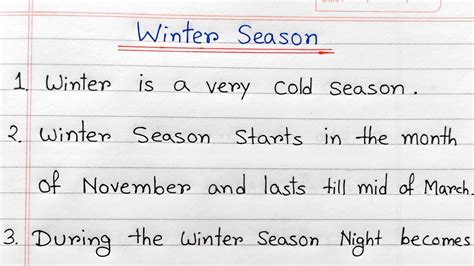 Winter Season
1. Winter is a very cold season.
2. Winter Season Starts in the month
of November and lasts till mid of March.
3. During the Winter Season Night becomes